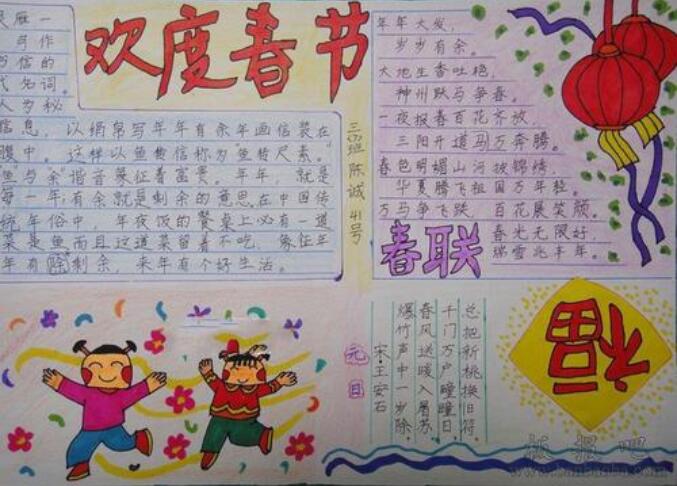 欢度春节
鱼雁一
司作
书信的
代名词。
人为秘
信息，以绢帛写年年有余年画信装在
腹中。这样以鱼转信称为"鱼转尺素。"
鱼与余"谐音象征着富贵。年年，就是
每一年;有余就是剩余的意思,在中国传
统年俗中 年夜饭的餐桌上必有一道
菜是鱼而且这道菜留着不吃，象征年
年有除剩余，来年有个好生活。
三(5)班陈诚41号
年年大发，
岁岁有余。
大地生香吐艳，
神州跃马争春。
一夜报春百花齐放，
三阳开道马万奔腾。
春色明媚山河披锦绣，
华夏腾飞祖国万年轻。
万马争飞跃，百花展笑颜。
春光无限好，
瑞雪兆丰年。
春联
元日
宋·王安石
爆竹声中一岁除，
春风送暖入屠苏
千门万户瞳瞳日，
总把新桃换旧符。
福
板报吧
www.banbaoba.com